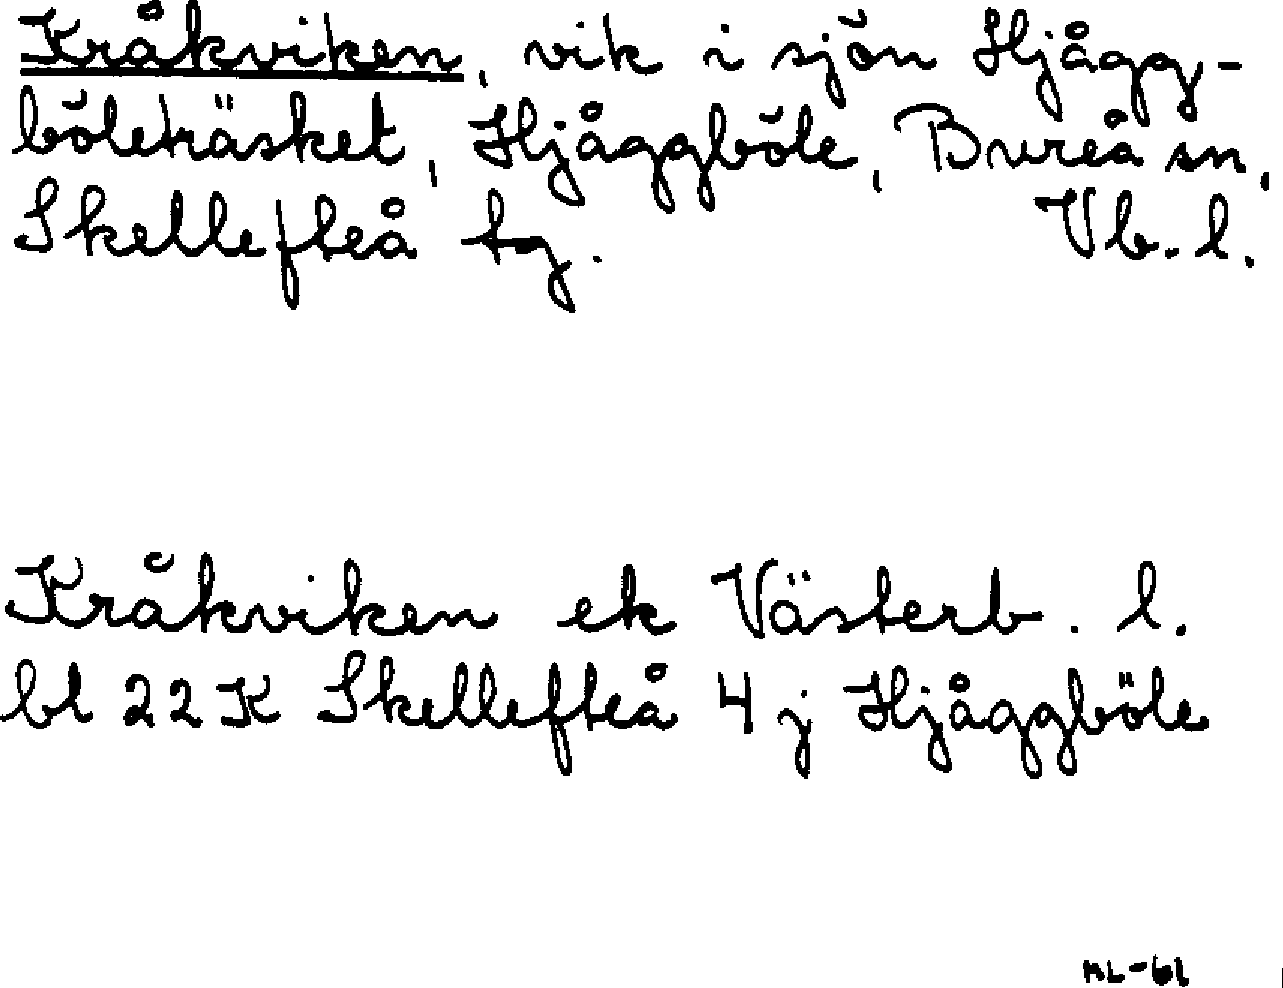 Kråkviken, vik i sjön Hjågg-
böleträsket, Hjåggböle, Bureå sn,
Skellefteå tg. Vb. l.
Kråkviken ek Västerb. l.
bl 22K Skellefteå 4j Hjåggböle
ML-61